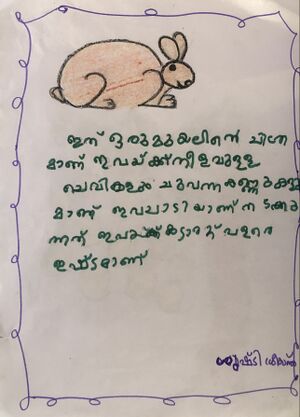 ഇത് ഒരു മുയലിന്റെ ചിത്ര
മാണ് ഇവയ്ക്ക് നീളമുള്ള
ചെവികളും ചുവന്ന കണ്ണുകളു
മാണ് ഇവ ചാടിയാണ് നടക്കു
ന്നത് ഇവയ്ക്ക് ക്യാരറ്റ് വളരെ
ഇഷ്ടമാണ്